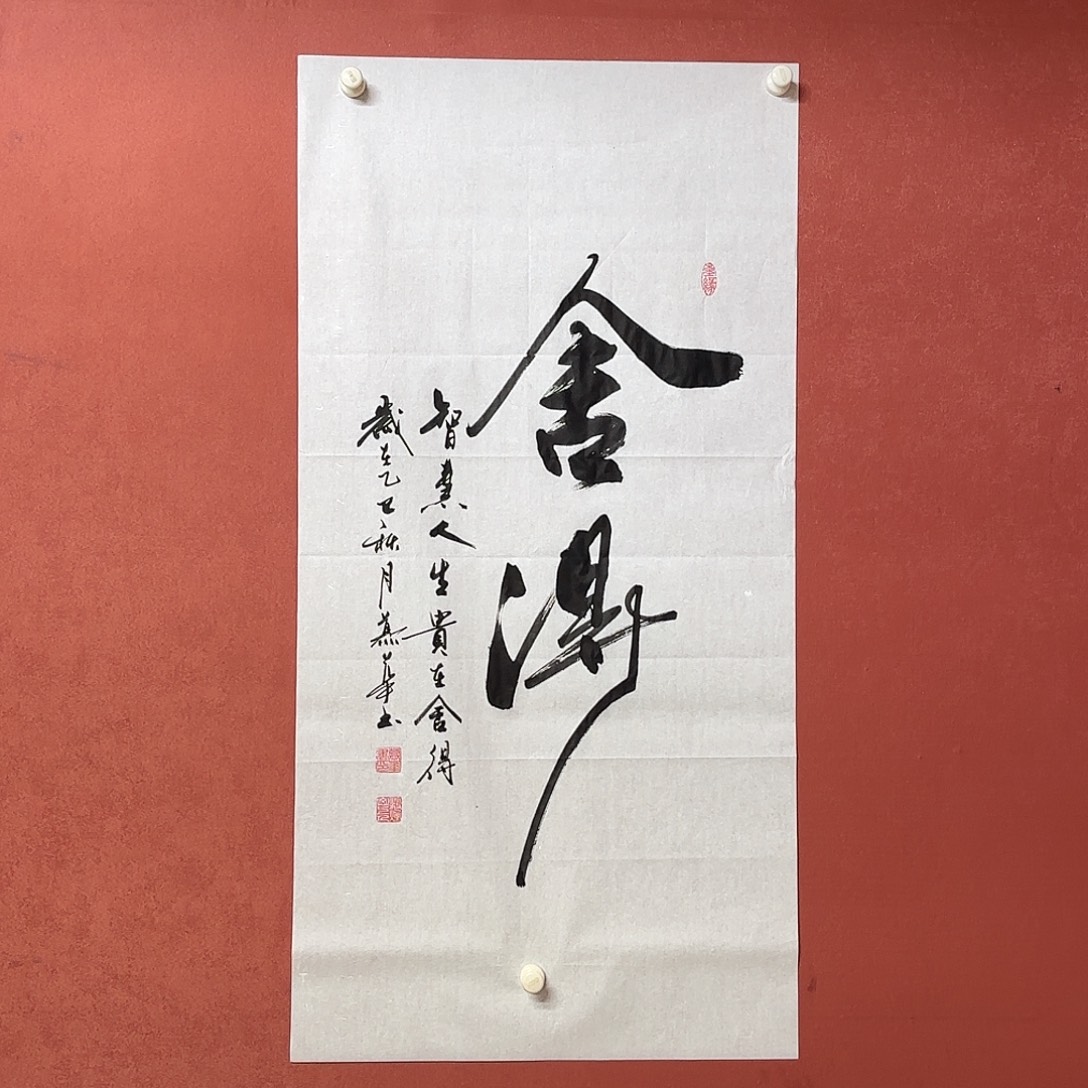 舍得
智慧人生貴在舍得
歲在乙巳秋月慕華书